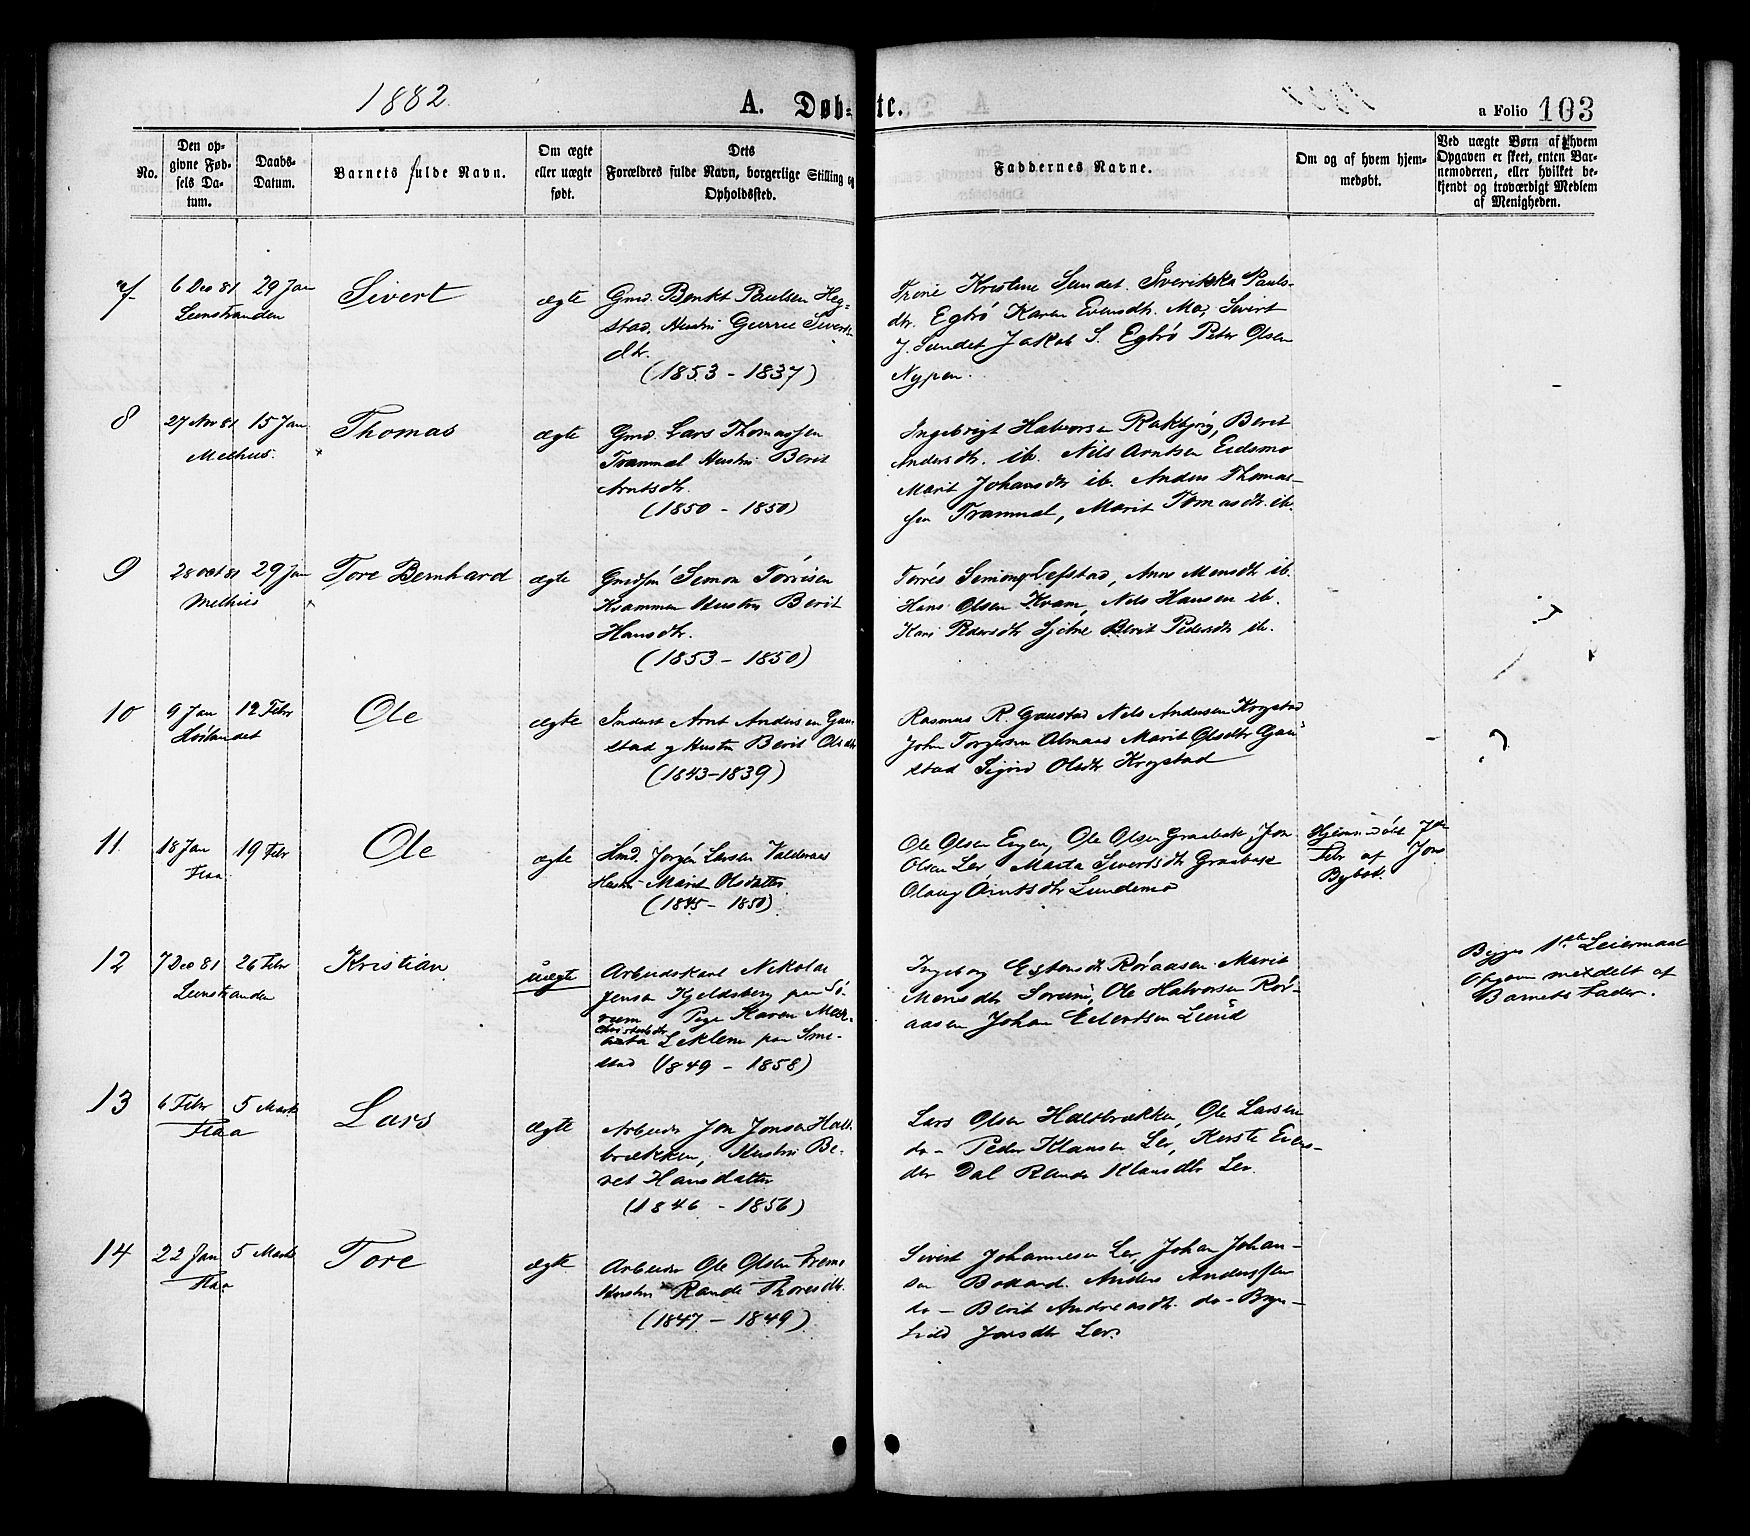 1882.
A. Døb-
te.
a Folio 103
No.
Den op-
givne Fød-
sels Da-
tum.
Daabs-
Datum.
Barnets fulde Navn.
Om ægte
eller uægte
født.
Dets
Forældres fulde Navn, borgerlige Stilling og
Opholdssted.
Faddernes Navne.
Om og af hvem hjem-
medøbt.
Ved uægte Børn af hvem
Opgaven er skeet, enten Bar-
nemoderen, eller hvilket be-
kjendt og troværdigt Medlem
af Menigheden.
7
6 Dec 81
29 Jan
Leinstranden
Sivert
ægte
Gmd. Benkt Paulsen Heg-
stad. Hustru Gurrie Siverts
dtr.
(1853 - 1837)
Trine Kristine Sundet. Pauls-
dtr. Eghø Karen Evensdtr. Mo, Sivert
J. Sundet Jakob S. Eghø Peter Olsen
Nypen.
8
27 Nov 81
15 Jan
Melhus.
Thomas
ægte
Gmd. Lars Thomassen
Trammel Hustru Berit
Arntsdtr.
(1850 - 1850)
Ingebrigt Halvorsen Rakbjørg, Berit
Andersdtr. ib. Nils Arntsen Eidsmo
Marit Johansdtr ib. Anders Thomas-
sen Trammel, Marit Tomasdtr. ib.
9
28 Oct 81
29 Jan
Melhus
Tore Bernhard
ægte
Simon Torrisen
Kvammen Hustru Berit
Hansdtr.
(1853 - 1850)
Torris Lefstad, Anne Monsdtr ib.
Hans Olsen Kvam, Nils Hansen ib.
Kari Pedersdtr Berit Pedersdtr ib.
10
9 Jan
12 Febr
Høilandet
Ole
ægte
Inderst Arnt Andersen Gau-
stad og Hustru Berit Olsdtr
(1843-1839)
Rasmus R. Gaustad Nils Andersen Krogstad
John Torgersen Almaas Marit Olsdtr Gau
stad Sigrid Olsdtr Krogstad
11.
18 Jan
19 Febr
Flaa.
Ole
ægte
Hmd. Jørgen Larsen Valdraas
Hustru Marit Olsdatter
(1845 - 1850)
Ole Olsen Engen, Ole Olsen Graabak Jon
Olsen Ler Marta Sivertsdtr Graabak
Olaug Arntsdtr Lundemo
Hjemmedøbt 7de
Febr af Jons
12
7 Dec 81
26 Febr
Leinstranden
Kristian
uægte
Arbeidskarl Nikolai
Jensen Kjeldsberg paa Sø-
rum Pige Karen Mar-
Christensdtr
Leklem paa Sme-
stad (1849 - 1858)
Ingeborg Estensdtr Røraasen. Marit
Monsdtr Sørum, Ole Halvorsen Rør-
aasen Johan Evertsen Lund
Begges 1ste Leiermaal
Opgave meddelt af
Barnets Fader.
13
6 Febr
5 Marts
Flaa
Lars
ægte
Arbeider Jon Jonsen Halt-
brækken, Hustru Be-
ret Hansdatter
(1846 - 1856)
Lars Olsen Haltbrækken, Ole Larsen
do - Peder Klausen Ler, Kirsti Evens-
dtr Dal Randi Klausdtr Ler.
14
22 Jan
5 Marts
Flaa
Tore
ægte
Arbeider Ole Olsen Krem
Hustru Randi Thoresdtr.
(1847 - 1849)
Sivert Johannesen Ler, Johan Johan-
sen Anders Anderssen
do - Berit Andreasdtr. do - Bryn-
hild Jonsdtr Ler.